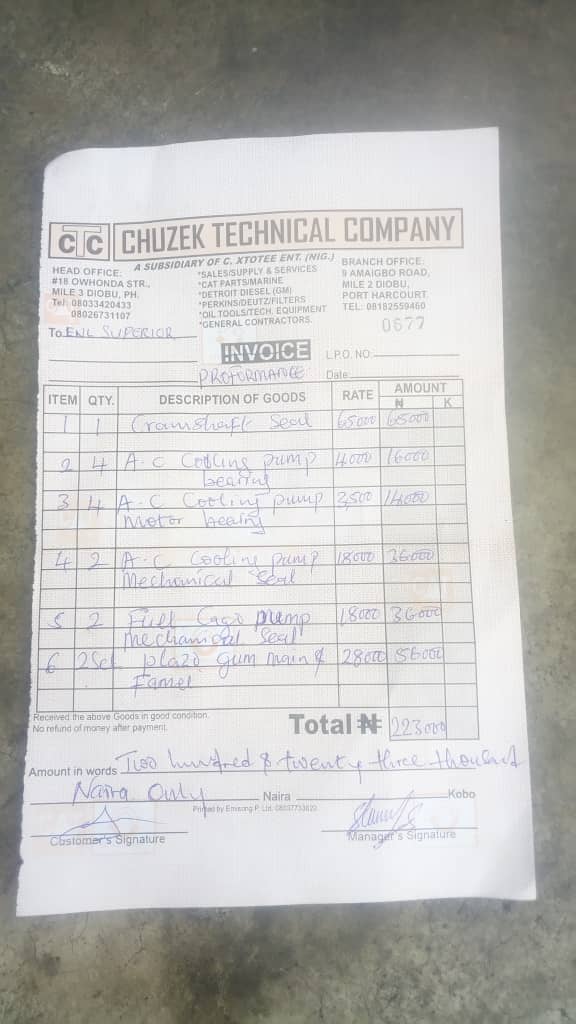 CTC CHUZEK TECHNICAL COMPANY
A SUBSIDIARY OF C. XTOTEE ENT. (NIG.)
HEAD OFFICE:
#18 OWHONDA STR.,
MILE 3 DIOBU, PH.
Tel: 08033420433
08026731107
*SALES/SUPPLY & SERVICES
*CAT PARTS/MARINE
*DETROIT DIESEL (GM)
*PERKINS/DEUTZ/FILTERS
*OIL TOOLS/TECH. EQUIPMENT
*GENERAL CONTRACTORS.
BRANCH OFFICE:
9 AMAIGBO ROAD,
MILE 2 DIOBU,
PORT HARCOURT.
TEL: 08182559460
0677
To ENL SUPERIOR
INVOICE
L.P.O. NO:
PROFORMANCE
Date:
ITEM QTY. DESCRIPTION OF GOODS RATE AMOUNT
₦ K
1 1 Cramshaft Seal 65000 65000
2 4 A.C Cooling pump 4000 16000
bearing
3 4 A.C Cooling pump 3,500 14000
Motor bearing
4 2 A.C Cooling pump 18000 36000
Mechanical Seal
5 2 Fuel Cago pump 18000 36000
mechanical Seal
6 2Set plazo gum main & 28000 56000
Famel
Received the above Goods in good condition.
No refund of money after payment.
Total ₦ 223000
Amount in words Two hundred & twenty three thousand
Naira Only Naira Kobo
Printed by Envisong P. Ltd. 08037733622
Customer's Signature
Manager's Signature